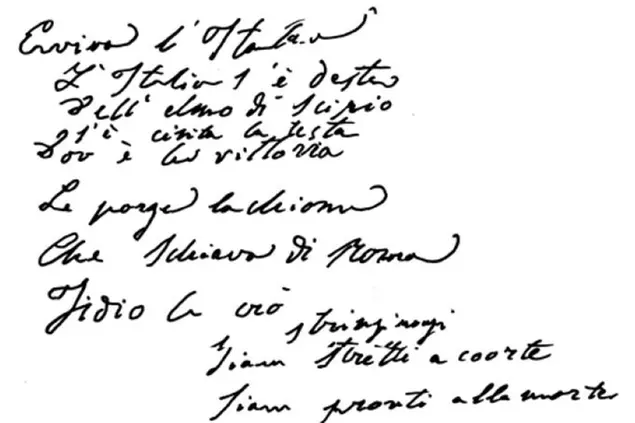 Evviva l'Italia
L'Italia s'è desta
Dell'elmo di Scipio
S'è cinta la testa
Dov'è la vittoria
Le porga la chioma
Che schiava di Roma
Iddio la creò
stringiamoci
Siam stretti a coorte
Siam pronti alla morte